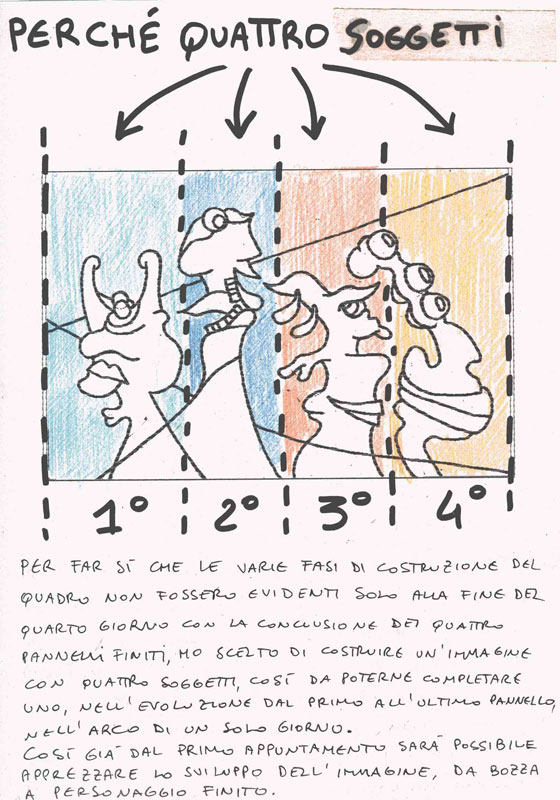 PERCHÉ QUATTRO SOGGETTI
1° 2° 3° 4°
PER FAR SÌ CHE LE VARIE FASI DI COSTRUZIONE DEL
QUADRO NON FOSSERO EVIDENTI SOLO ALLA FINE DEL
QUARTO GIORNO CON LA CONCLUSIONE DEI QUATTRO
PANNELLI FINITI, HO SCELTO DI COSTRUIRE UN'IMMAGINE
CON QUATTRO SOGGETTI, COSÌ DA POTERNE COMPLETARE
UNO, NELL'EVOLUZIONE DAL PRIMO ALL'ULTIMO PANNELLO,
NELL'ARCO DI UN SOLO GIORNO.
COSÌ GIÀ DAL PRIMO APPUNTAMENTO SARÀ POSSIBILE
APPREZZARE LO SVILUPPO DELL'IMMAGINE, DA BOZZA
A PERSONAGGIO FINITO.